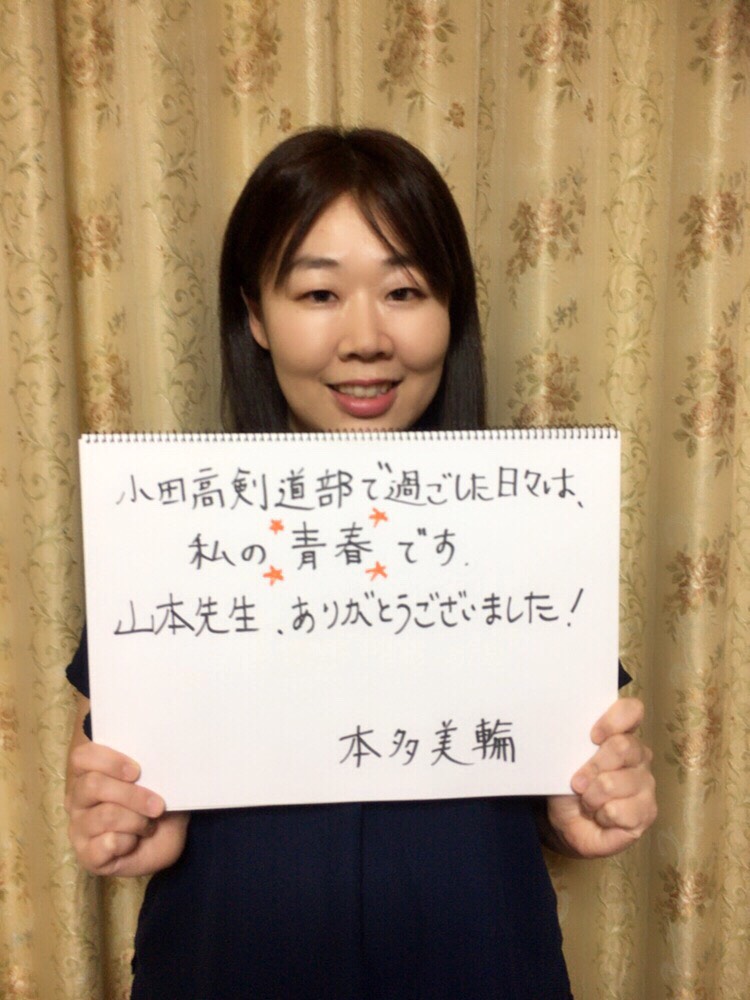 小田高剣道部で過ごした日々は、
私の青春です.
山本先生、ありがとうございました!
本多美輪